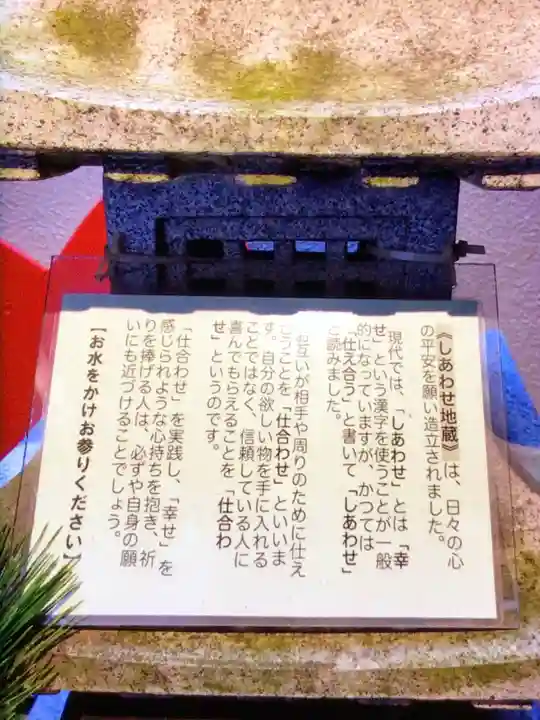 《しあわせ地蔵》は、日々の心
の平安を願い造立されました。
現代では、「しあわせ」とは「幸
せ」という漢字を使うことが一般
的になっていますが、かつては
「仕え合う」と書いて「しあわせ」
と読みました。
お互いが相手や周りのために仕え
合うことを「仕合わせ」といいま
す。自分の欲しい物を手に入れる
ことではなく、信頼している人に
喜んでもらえることを「仕合わ
せ」というのです。
「仕合わせ」を実践し、「幸せ」を
感じられような心持ちを抱き、祈
りを捧げる人は、必ずや自身の願
いにも近づけることでしょう。
【お水をかけお参りください】